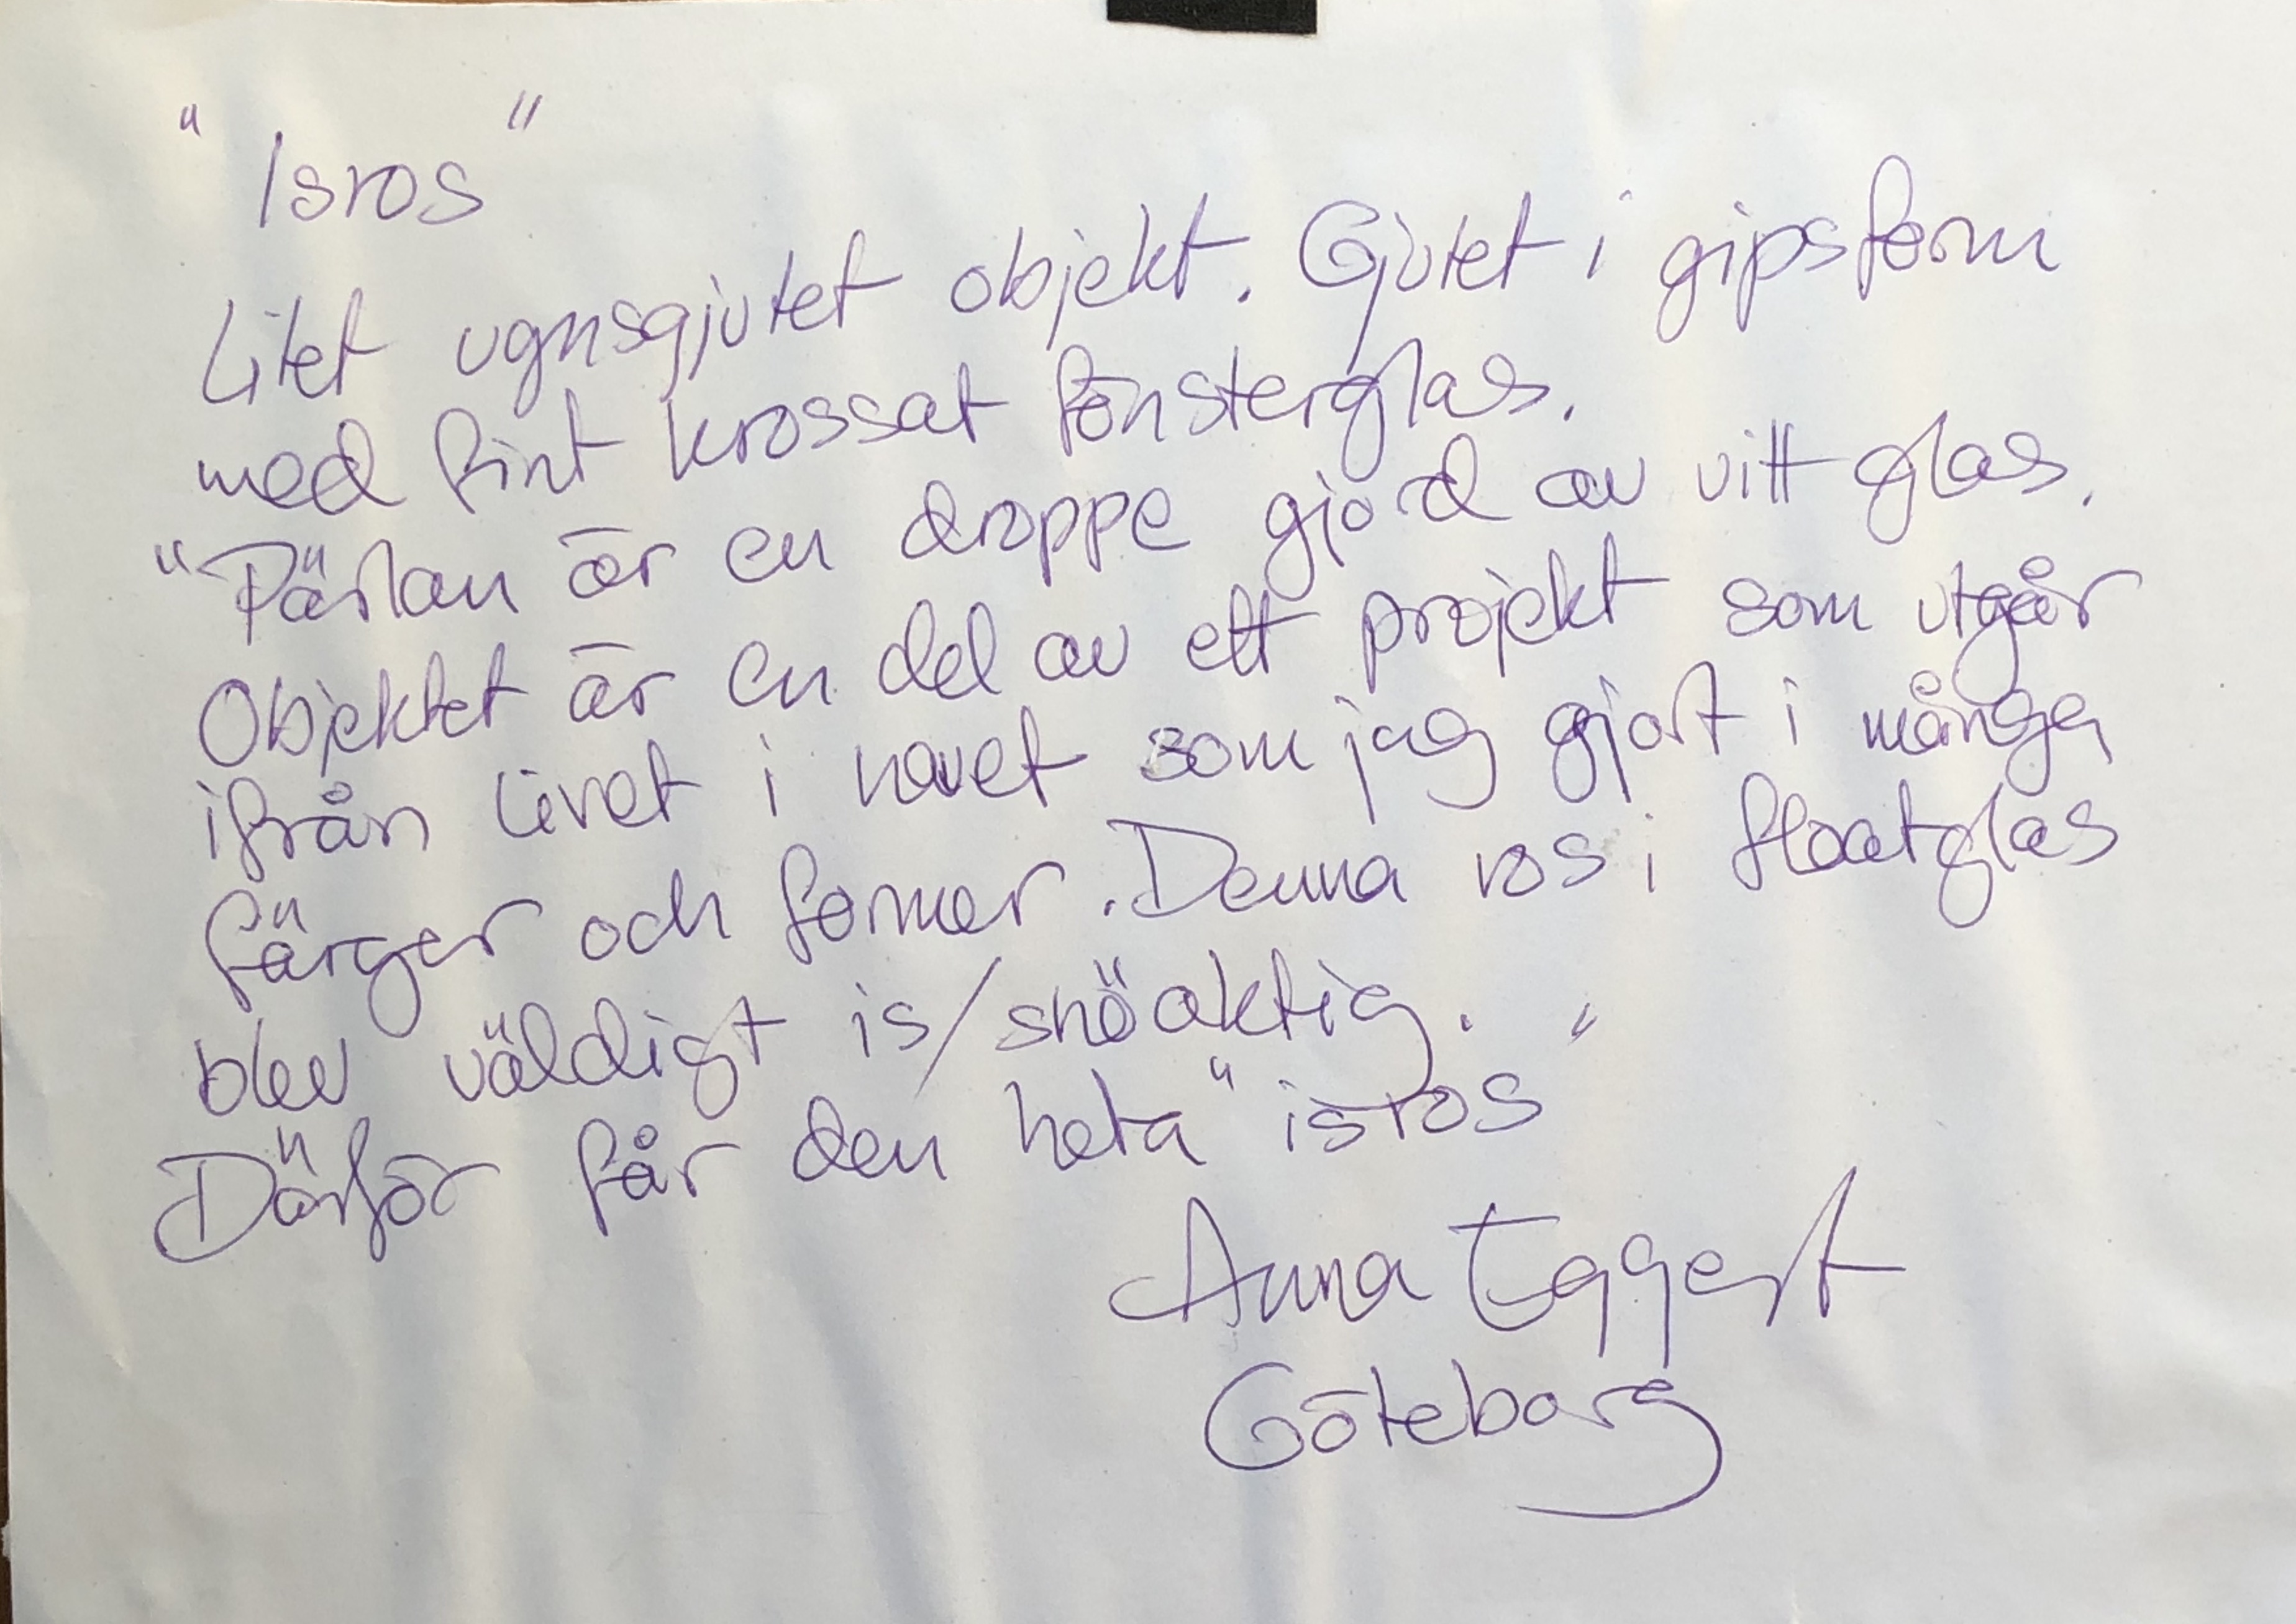 "Isros"
Litet ugnsgjutet objekt. Gjutet i gipsform
med fint krossat fönsterglas.
"Pärlan är en droppe gjord av vitt glas.
Objektet är en del av ett projekt som utgår
ifrån livet i havet som jag gjort i många
färger och former. Denna ros i floatglas
blev väldigt is/snöaktig.
Därför får den heta "isros"
Anna Eggert
Göteborg